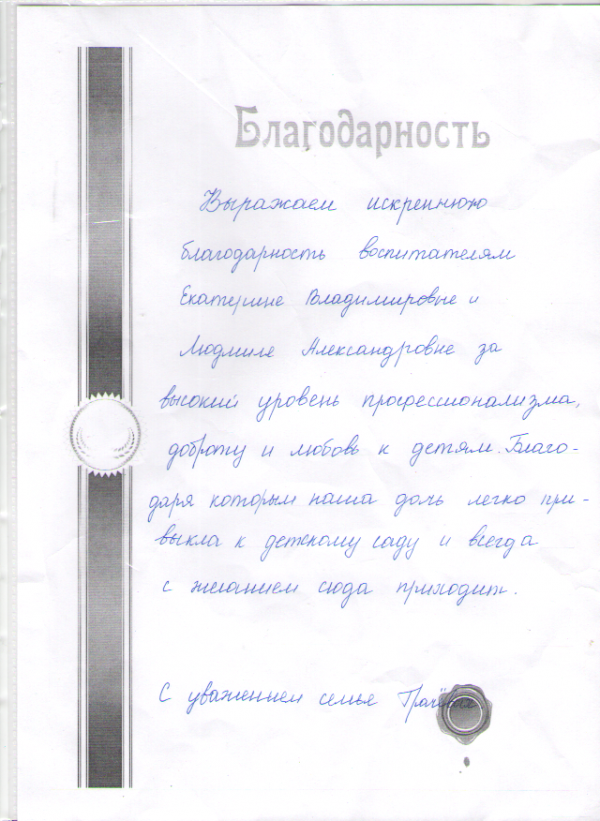 Благодарность
Выражаем искреннюю
благодарность воспитателям
Екатерине Владимировне и
Людмиле Александровне за
высокий уровень профессионализма,
доброту и любовь к детям. Благо-
даря которым наша дочь легко при-
выкла к детскому саду и всегда
с желанием сюда приходит.
С уважением семья